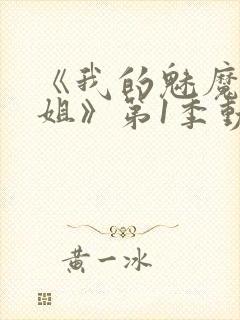 《我的魅魔
姐》第1季動
黄一冰